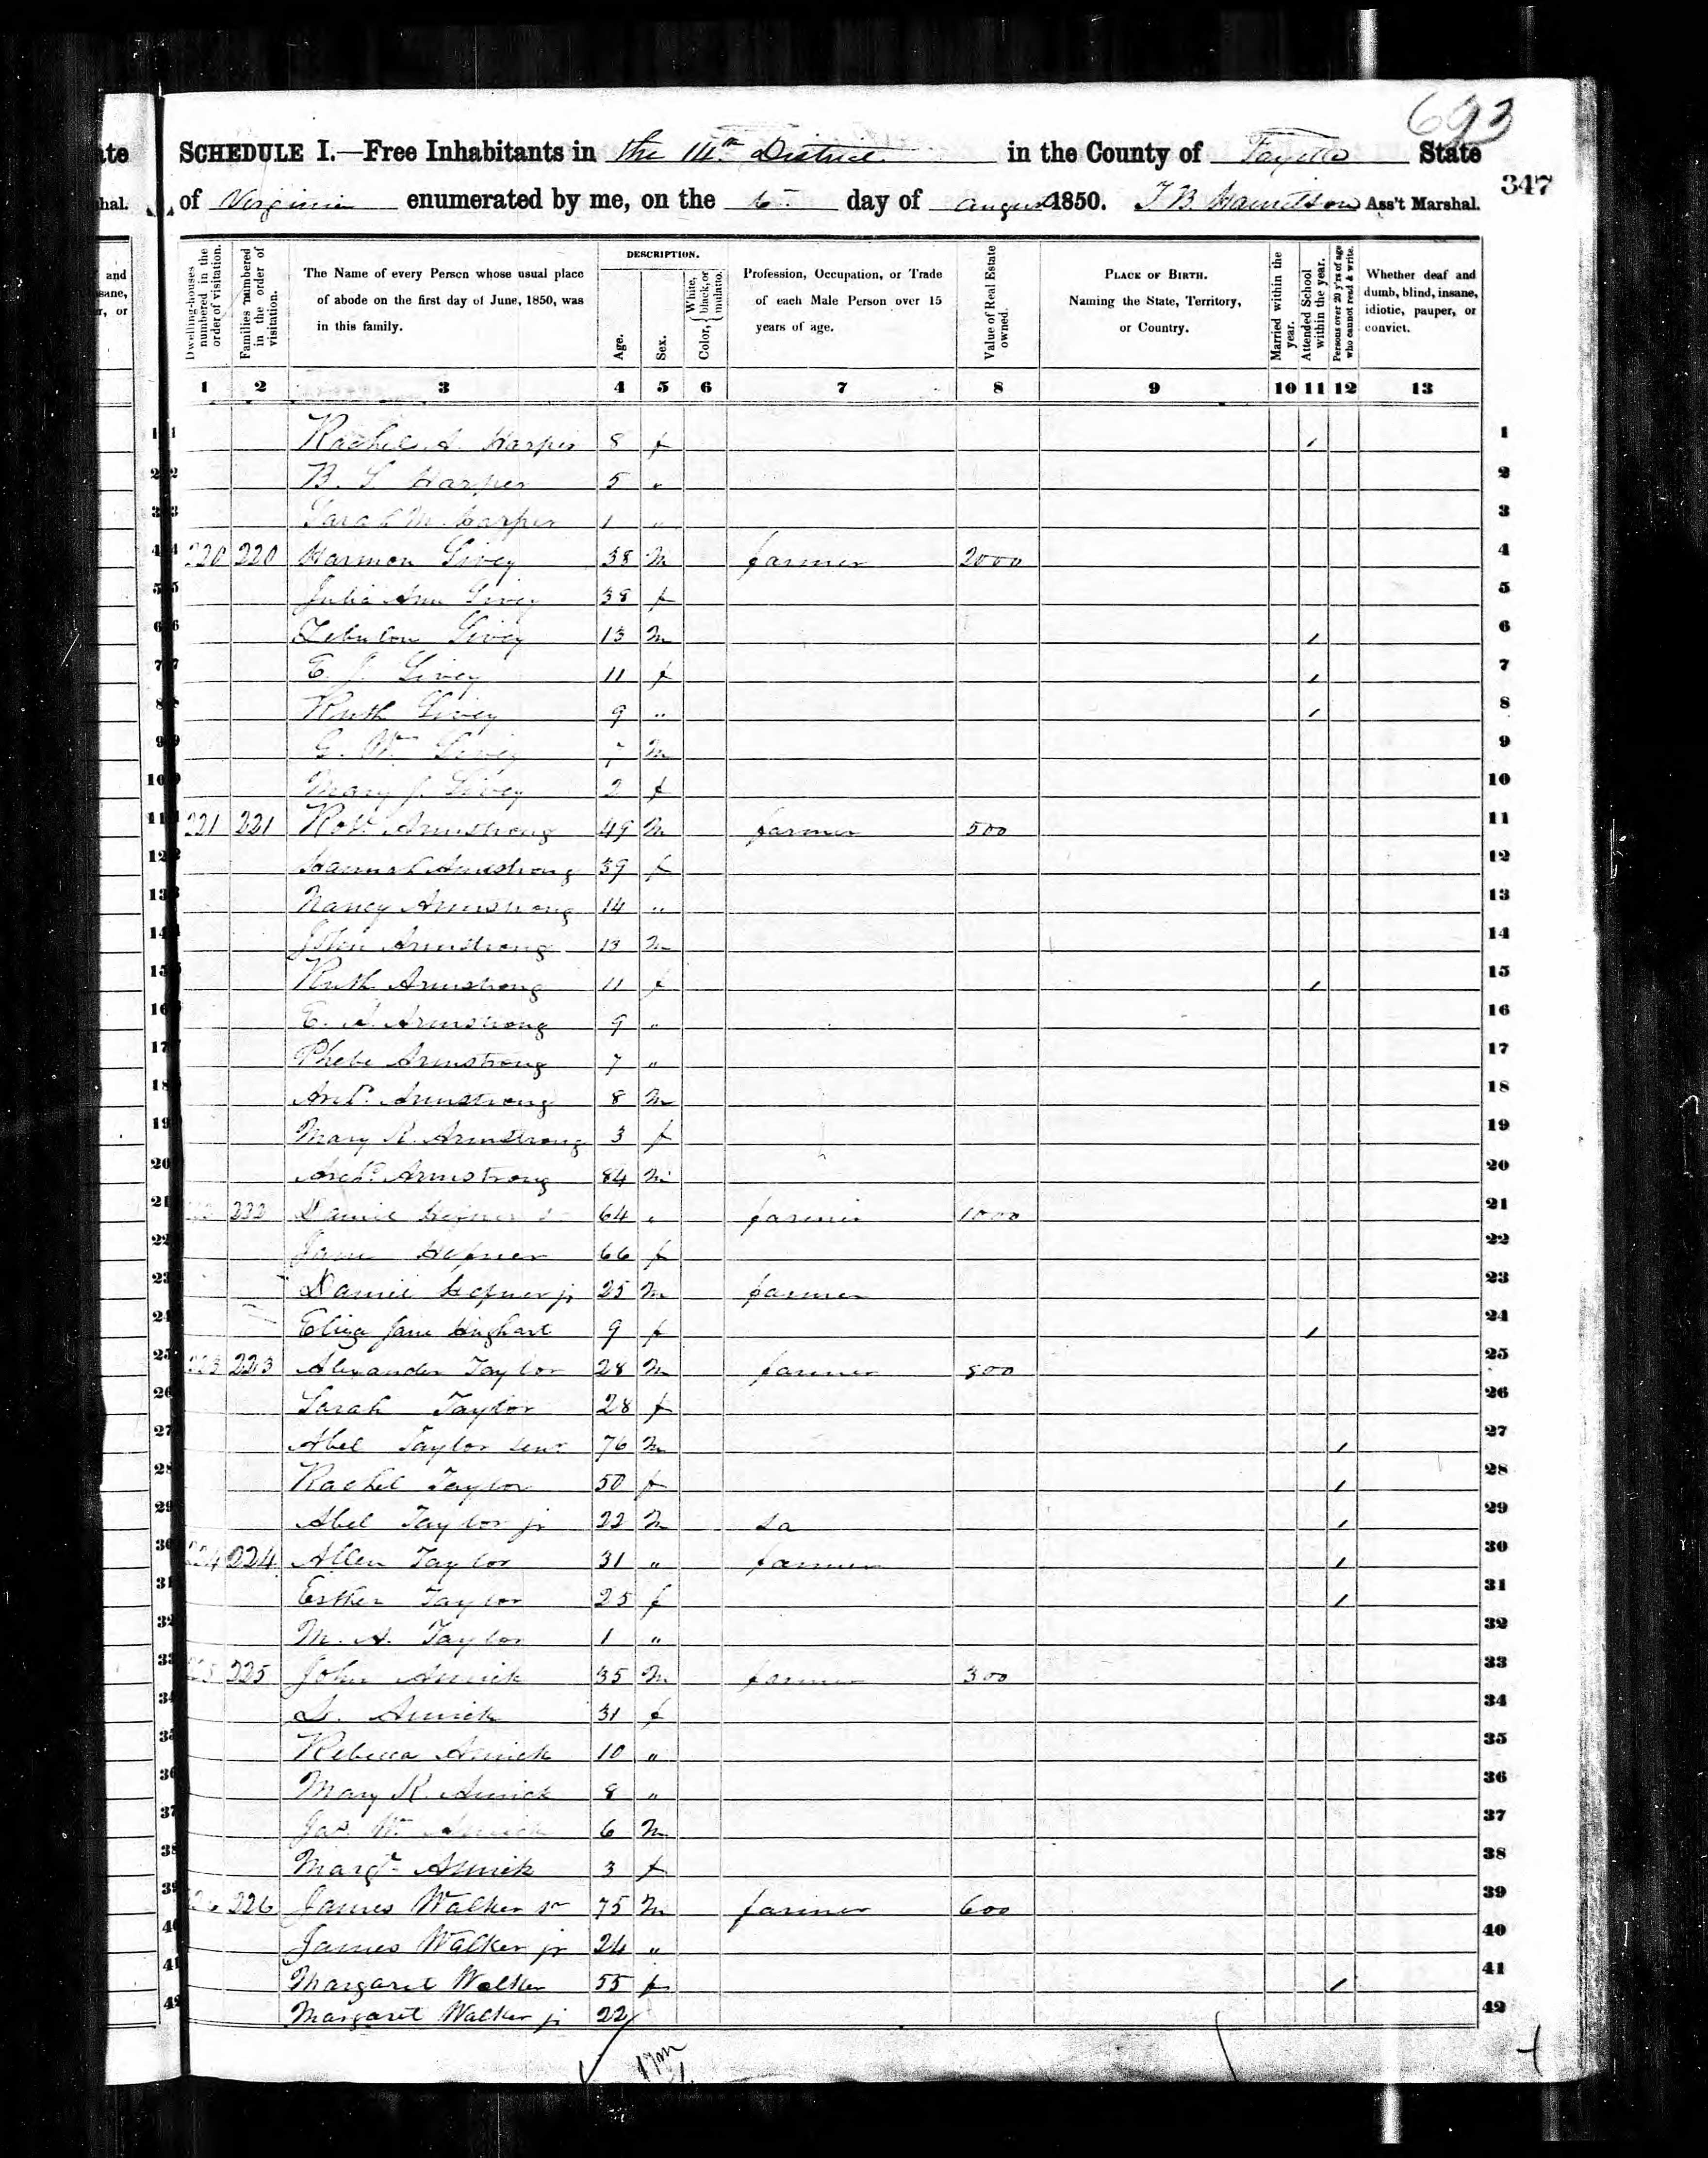 693
SCHEDULE I.—Free Inhabitants in the 14th District in the County of Fayette State
347
of Virginia enumerated by me, on the 6 day of August 1850. Ass't Marshal.
Dwelling-houses numbered in the order of visitation.
Families numbered in the order of visitation.
The Name of every Person whose usual place of abode on the first day of June, 1850, was in this family.
DESCRIPTION.
Age.
Sex.
Color, { White, black, or mulatto.
Profession, Occupation, or Trade of each Male Person over 15 years of age.
Value of Real Estate owned.
PLACE OF BIRTH. Naming the State, Territory, or Country.
Married within the year.
Attended School within the year.
Persons over 20 y'rs of age who cannot read & write.
Whether deaf and dumb, blind, insane, idiotic, pauper, or convict.
1 2 3 4 5 6 7 8 9 10 11 12 13
1 Rachel A. Harper 8 f / 1
2 B. S. Harper 5 " 2
3 Sarah M. Harper 1 " 3
4 220 220 Harmon Livey 38 M farmer 2000 4
5 Julia Ann Livey 38 f 5
6 Zebulon Livey 13 M / 6
7 E. J. Livey 11 f / 7
8 Ruth Livey 9 " / 8
9 G. W. Livey 7 M 9
10 Mary J. Livey 2 f 10
11 221 221 Robt. Armstrong 49 M farmer 500 11
12 Hannah Armstrong 39 f 12
13 Nancy Armstrong 14 " 13
14 John Armstrong 13 M 14
15 Ruth Armstrong 11 f / 15
16 E. A. Armstrong 9 " 16
17 Phebe Armstrong 7 " 17
18 Archd. Armstrong 8 M 18
19 Mary R. Armstrong 3 f 19
20 Archd. Armstrong 84 M 20
21 232 Daniel Hefner sr 64 " farmer 1000 21
22 Jane Hefner 66 f 22
23 Daniel Hefner jr 25 M farmer 23
24 Eliza Jane 9 f / 24
25 223 223 Alexander Taylor 28 M farmer 500 25
26 Sarah Taylor 28 f 26
27 Abel Taylor senr 76 M / 27
28 Rachel Taylor 50 f / 28
29 Abel Taylor jr 22 M / 29
30 224 224 Allen Taylor 31 " farmer / 30
31 Esther Taylor 25 f / 31
32 M. A. Taylor 1 " 32
33 225 225 John Amick 35 M farmer 300 33
34 Amick 31 f 34
35 Rebecca Amick 10 " 35
36 Mary R. Amick 8 " 36
37 Jas. Wm Amick 6 M 37
38 Margt. Amick 3 f 38
39 226 226 James Walker sr 75 M farmer 600 39
40 James Walker jr 24 " 40
41 Margaret Walker 55 f / 41
42 Margaret Walker jr 22 42
17m